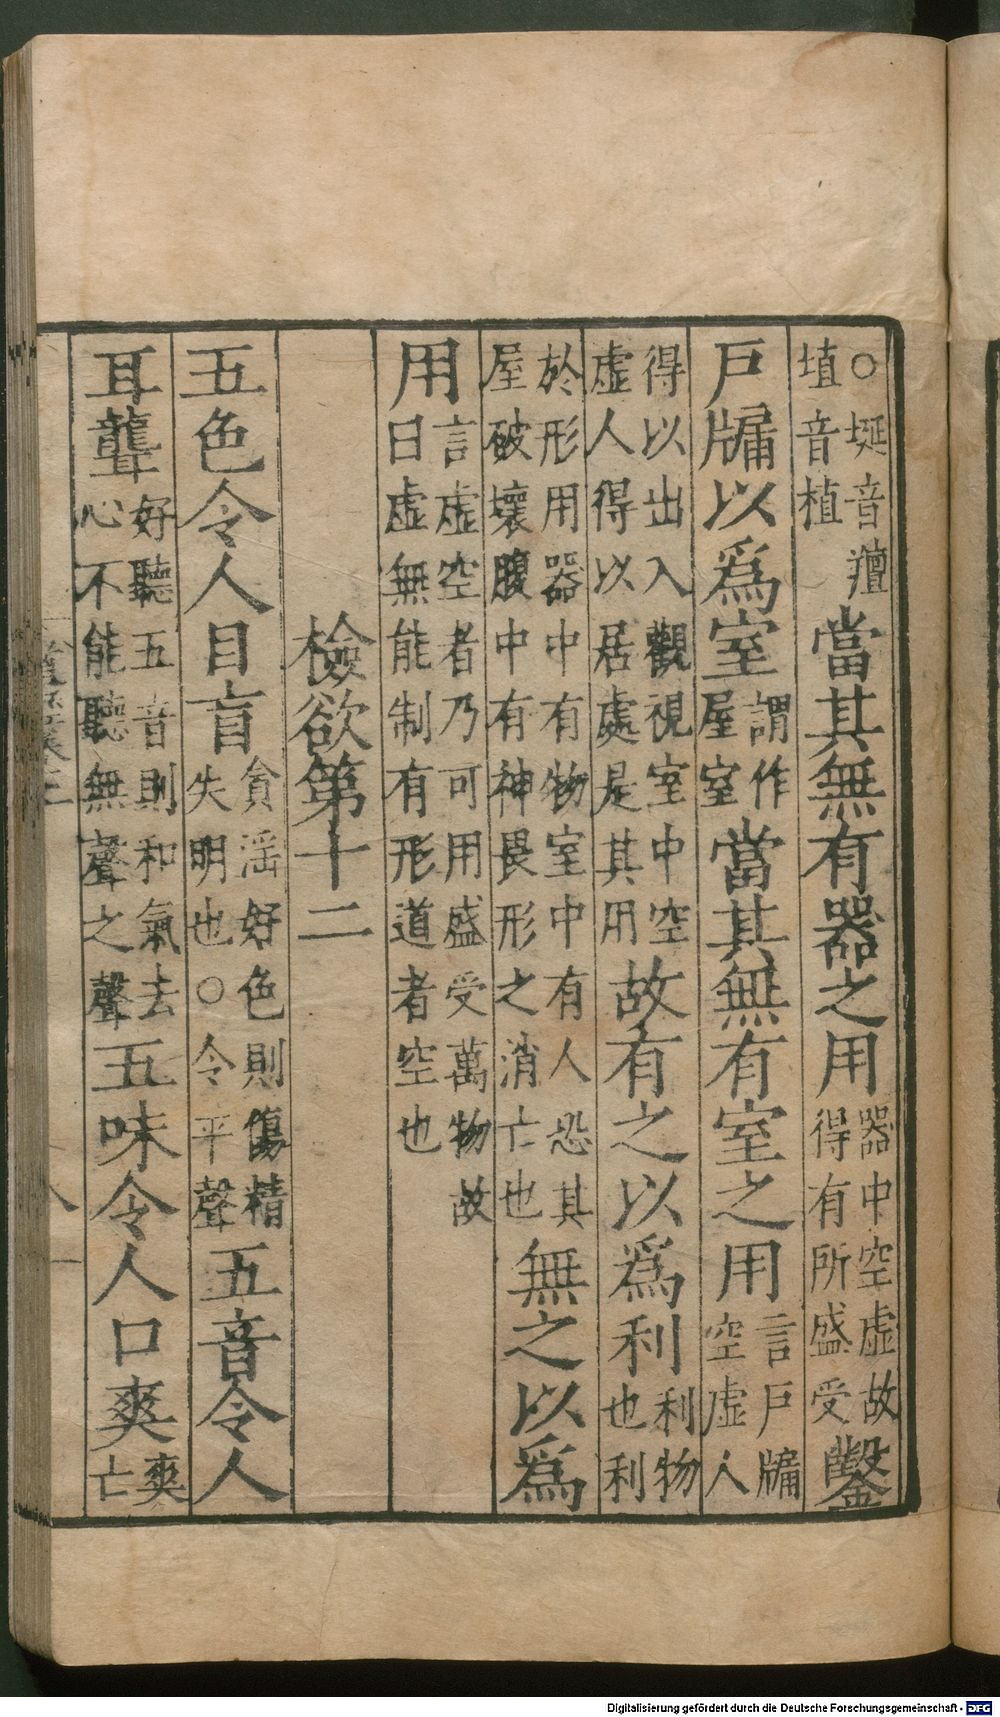 ○埏音羶埴音植當其無有器之用器中空虛故得有所盛受鑿
戶牖以爲室謂作屋室當其無有室之用言戶牖空虛人
得以出入觀視室中空虛人得以居處是其用故有之以爲利利物也利
於形用器中有物室中有人恐其屋破壞腹中有神畏形之消亡也無之以爲
用言虛空者乃可用盛受萬物故曰虛無能制有形道者空也
檢欲第十二
五色令人目盲貪滛好色則傷精失明也○令平聲五音令人
耳聾好聽五音則和氣去心不能聽無聲之聲五味令人口爽爽亡
Digitalisierung gefördert durch die Deutsche Forschungsgemeinschaft - DFG